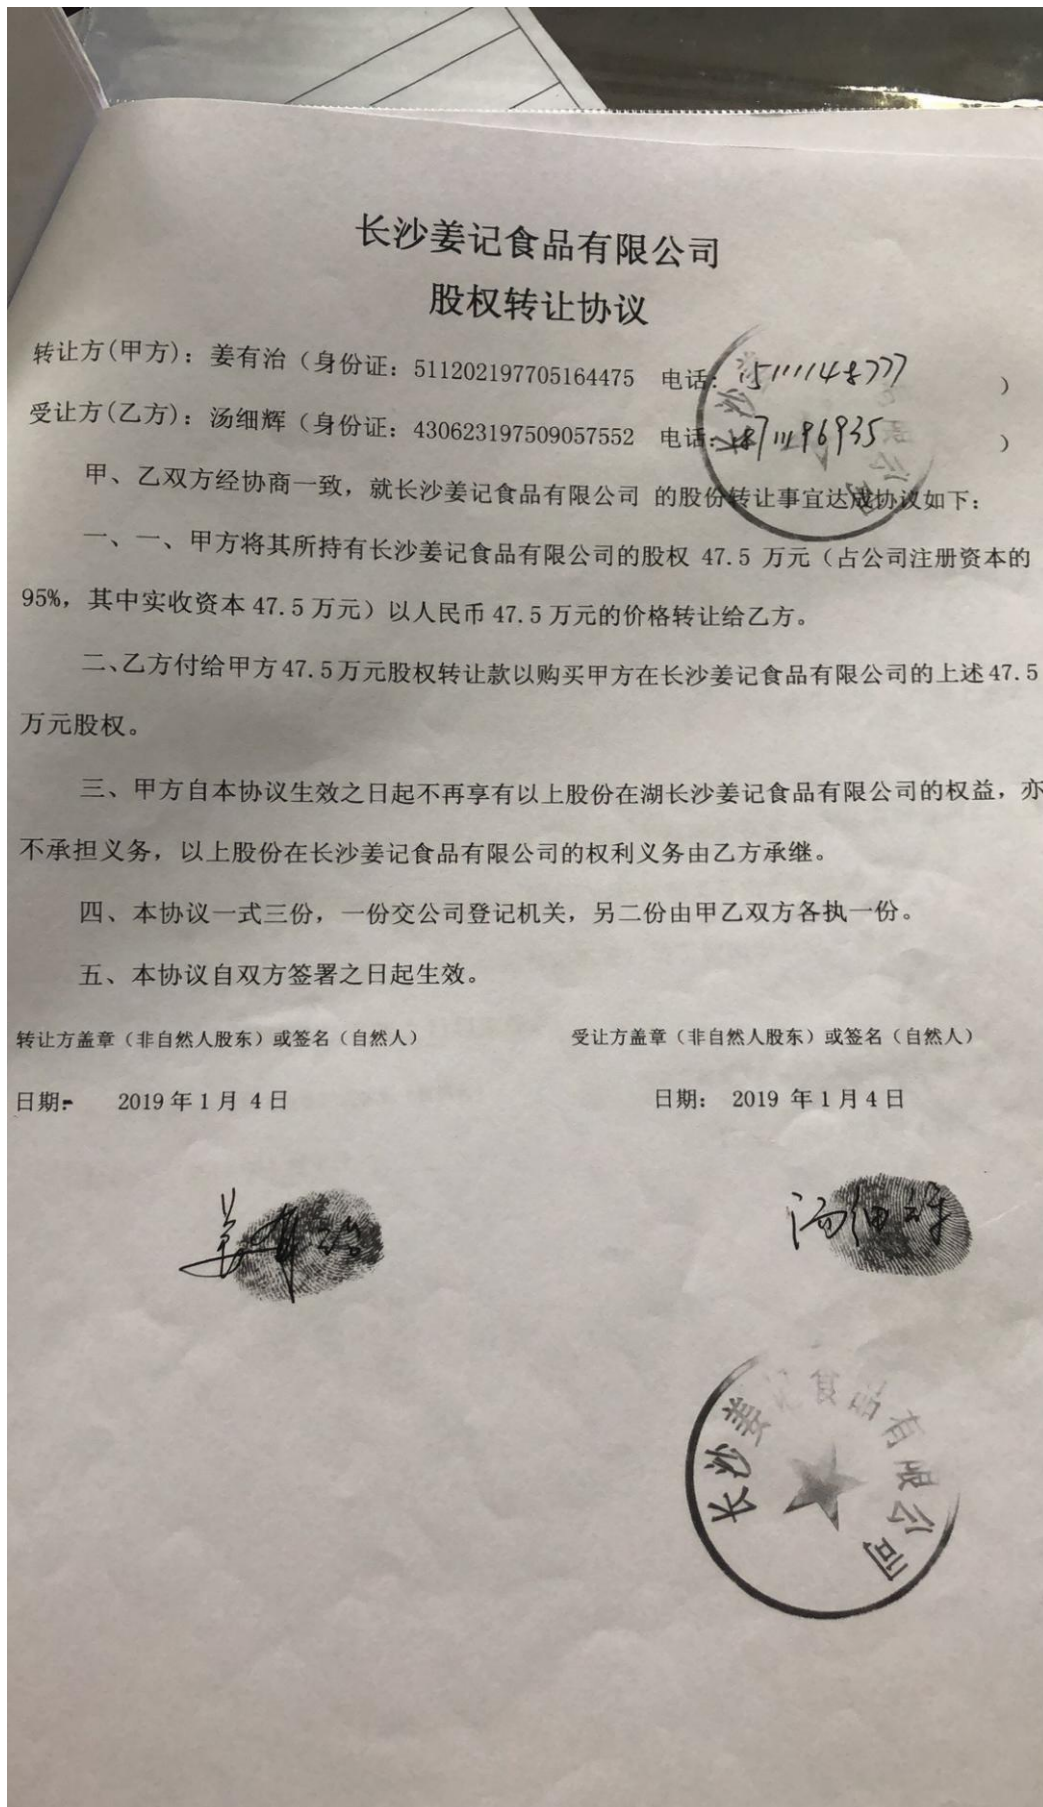 长沙姜记食品有限公司
股权转让协议
转让方(甲方)：姜有治（身份证：511202197705164475 电话：15111148777 ）
受让方(乙方)：汤细辉（身份证：430623197509057552 电话：18711196935 ）
甲、乙双方经协商一致，就长沙姜记食品有限公司 的股份转让事宜达成协议如下：
一、一、甲方将其所持有长沙姜记食品有限公司的股权 47.5 万元（占公司注册资本的
95%，其中实收资本 47.5 万元）以人民币 47.5 万元的价格转让给乙方。
二、乙方付给甲方 47.5 万元股权转让款以购买甲方在长沙姜记食品有限公司的上述 47.5
万元股权。
三、甲方自本协议生效之日起不再享有以上股份在湖长沙姜记食品有限公司的权益，亦
不承担义务，以上股份在长沙姜记食品有限公司的权利义务由乙方承继。
四、本协议一式三份，一份交公司登记机关，另二份由甲乙双方各执一份。
五、本协议自双方签署之日起生效。
转让方盖章（非自然人股东）或签名（自然人） 受让方盖章（非自然人股东）或签名（自然人）
日期： 2019 年 1 月 4 日 日期： 2019 年 1 月 4 日
姜有治 汤细辉
长沙姜记食品有限公司